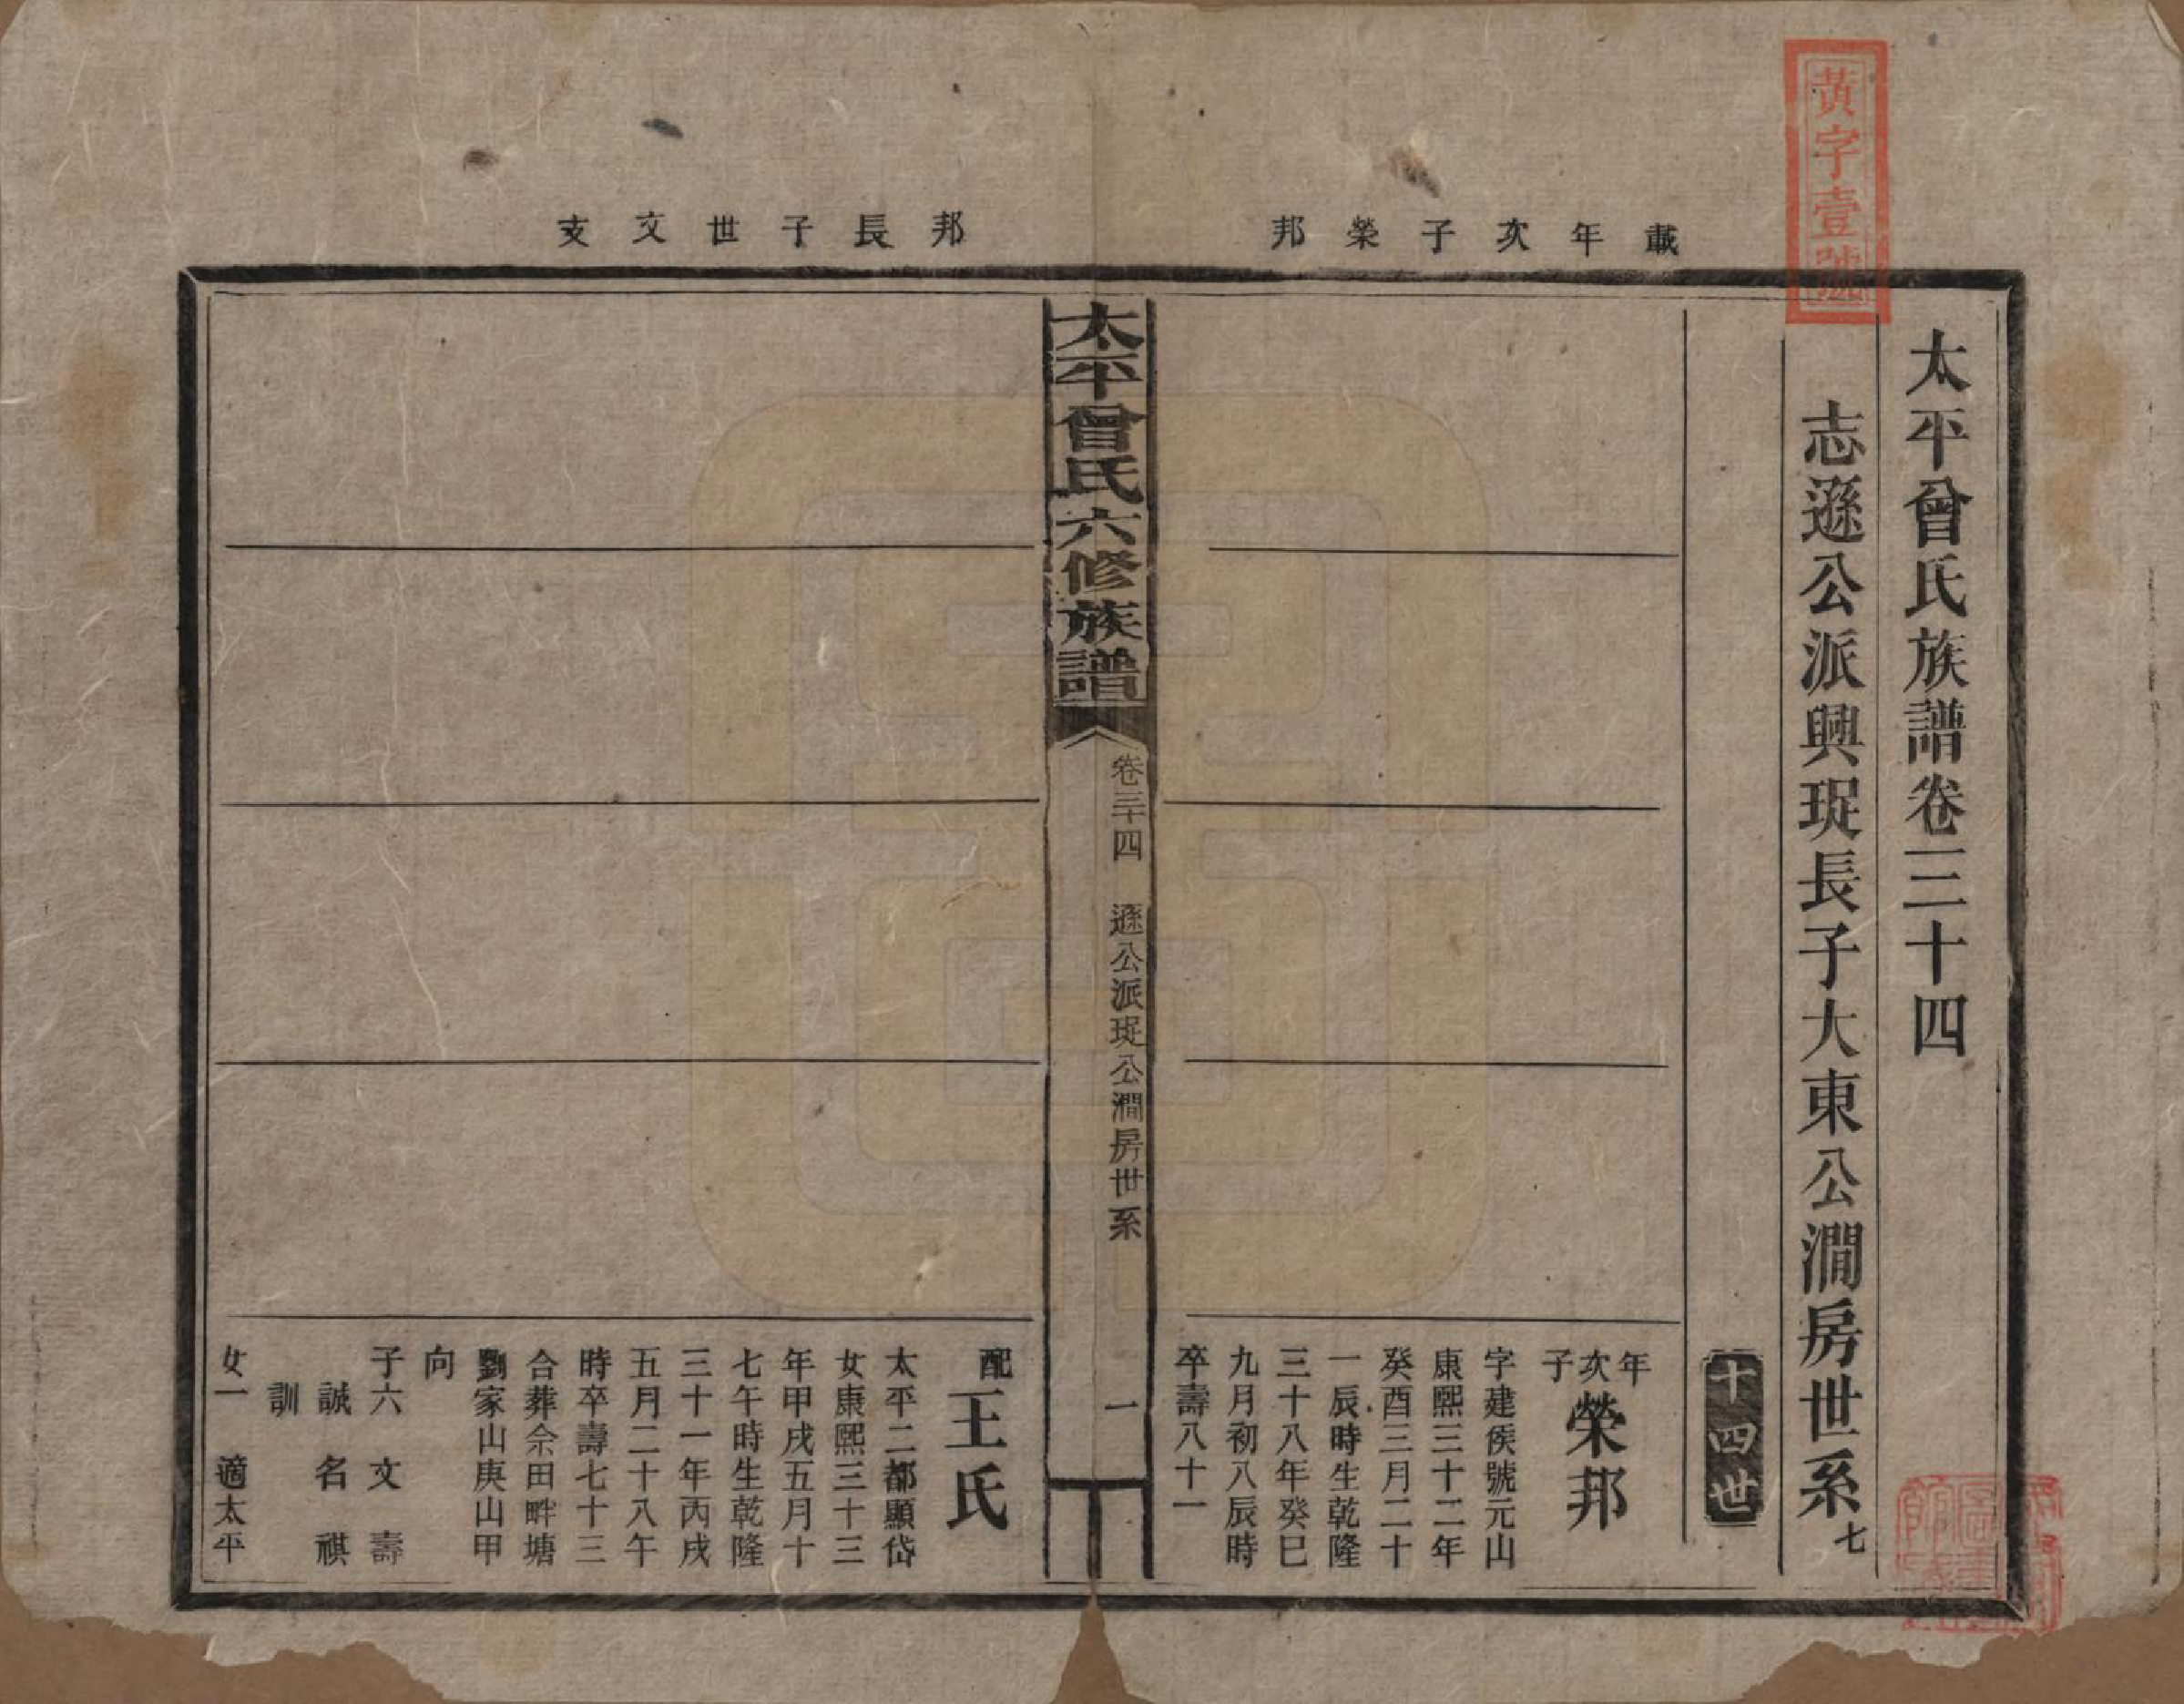 黃字壹號
太平曾氏族譜卷三十四
志遜公派興珽長子大東公澗房世系七
十四世
載年次子榮邦
年次子榮邦
字建侯號元山
康熙三十二年
癸酉三月二十
一辰時生乾隆
三十八年癸巳
九月初八辰時
卒壽八十一
太平曾氏六修族譜
卷三十四 遜公派珽公澗房世系
一
邦長子世文支
配王氏
太平二都顯岱
女康熙三十三
年甲戌五月十
七午時生乾隆
三十一年丙戌
五月二十八午
時卒壽七十三
合葬佘田畔塘
劉家山庚山甲
向
子六 文 壽
誠 名 祺
訓
女一 適太平